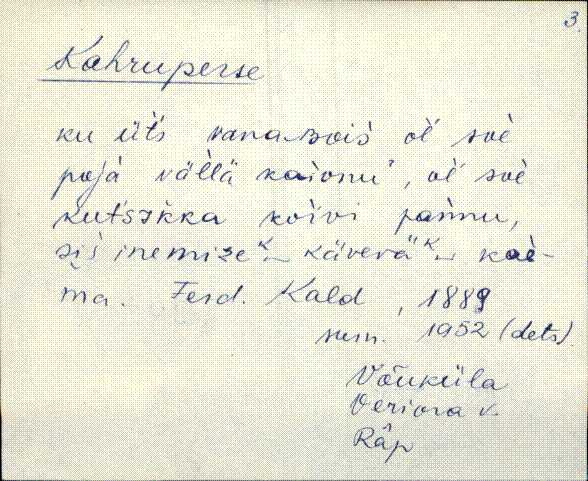 3.
Kahruperse
ku üt́s vanaʙoiś oĺ soè
pojà välĺä kaìonuˀ, oĺ soè
kut́sikka koìvi pańnu,
siś inemizeᴷ‿ käveräᴷ‿ kaè-
ma. Ferd. Kald, 1889
sum. 1952 (dets).
Võuküla
Veriora v.
Räp